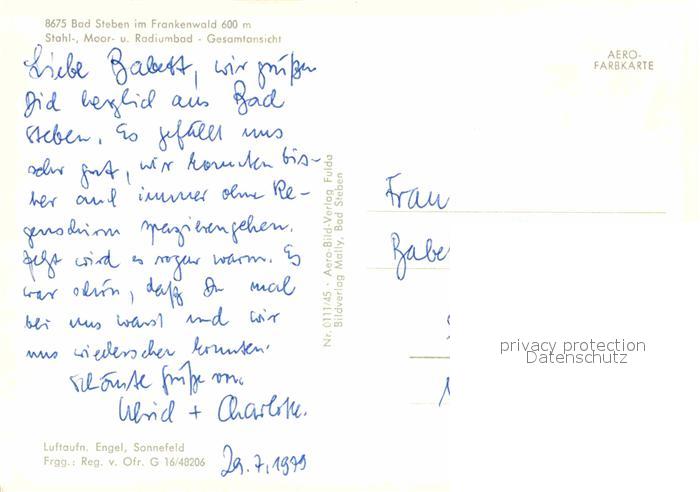 8675 Bad Steben im Frankenwald 600 m
Stahl-, Moor- u. Radiumbad - Gesamtansicht
Liebe Babett, wir grüßen
Dich herzlich aus Bad
Steben. Es gefällt uns
sehr gut, wir konnten bis-
her auch immer ohne Re-
genschirm spazierengehen.
Jetzt wird es sogar warm. Es
war schön, daß Du mal
bei uns warst und wir
uns wiedersehen konnten.
Schönste Grüße von
Ulrich + Charlotte.
29.7.1979
Luftaufn. Engel, Sonnefeld
Frgg.: Reg. v. Ofr. G 16/48206
Nr. 0111/45 · Aero-Bild-Verlag Fulda
Bildverlag Mally, Bad Steben
AERO-
FARBKARTE
Frau
Babe
privacy protection
Datenschutz